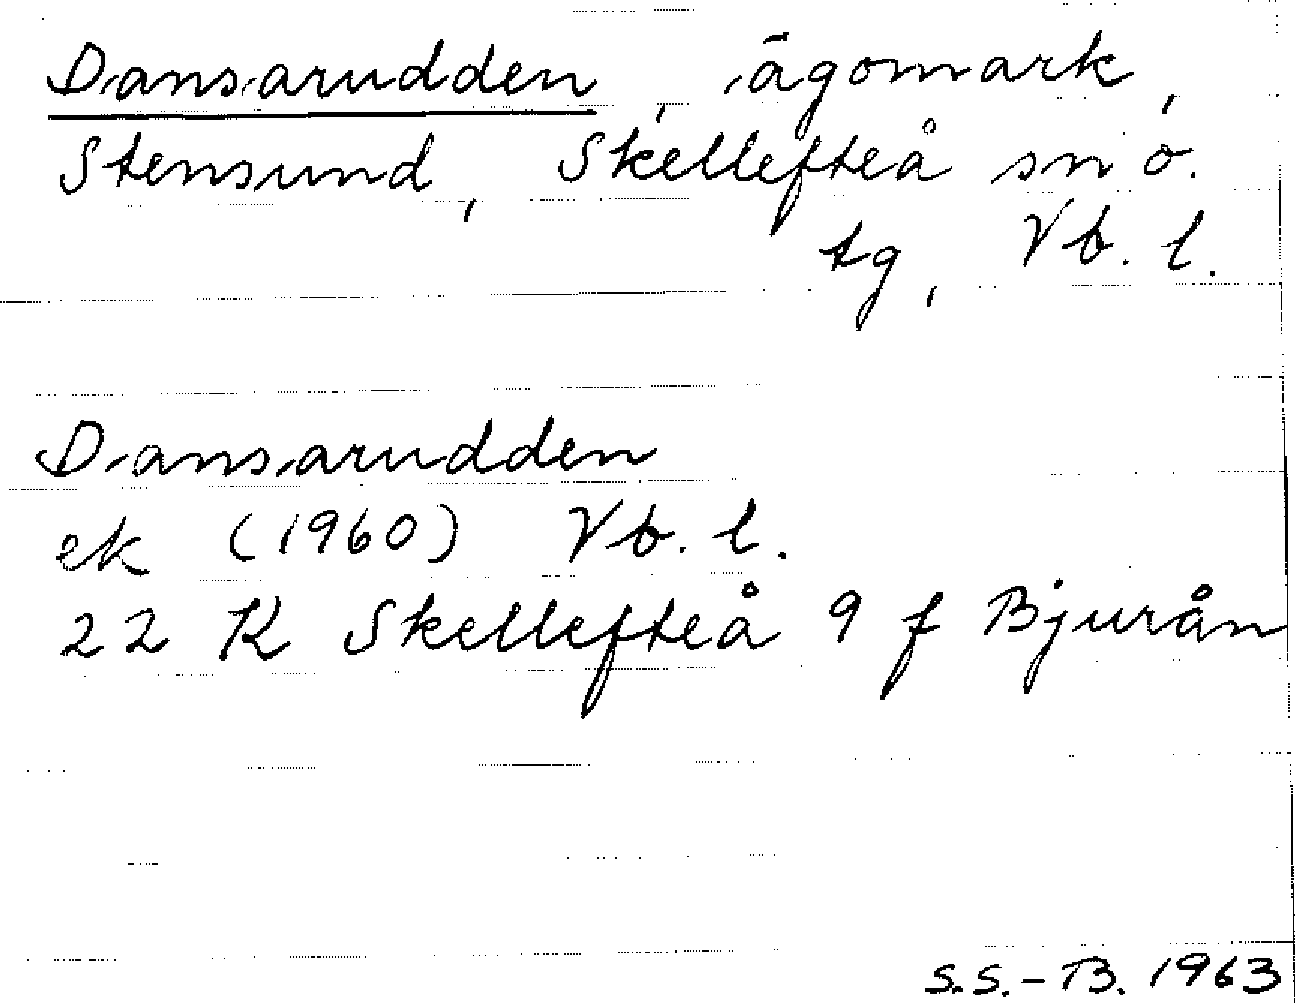 Dansarudden, ägomark,
Stensund, Skellefteå sn o.
tg, Vb. l.
Dansarudden
ek (1960) Vb. l.
22 K Skellefteå 9 f Bjurån
S.S.-B. 1963